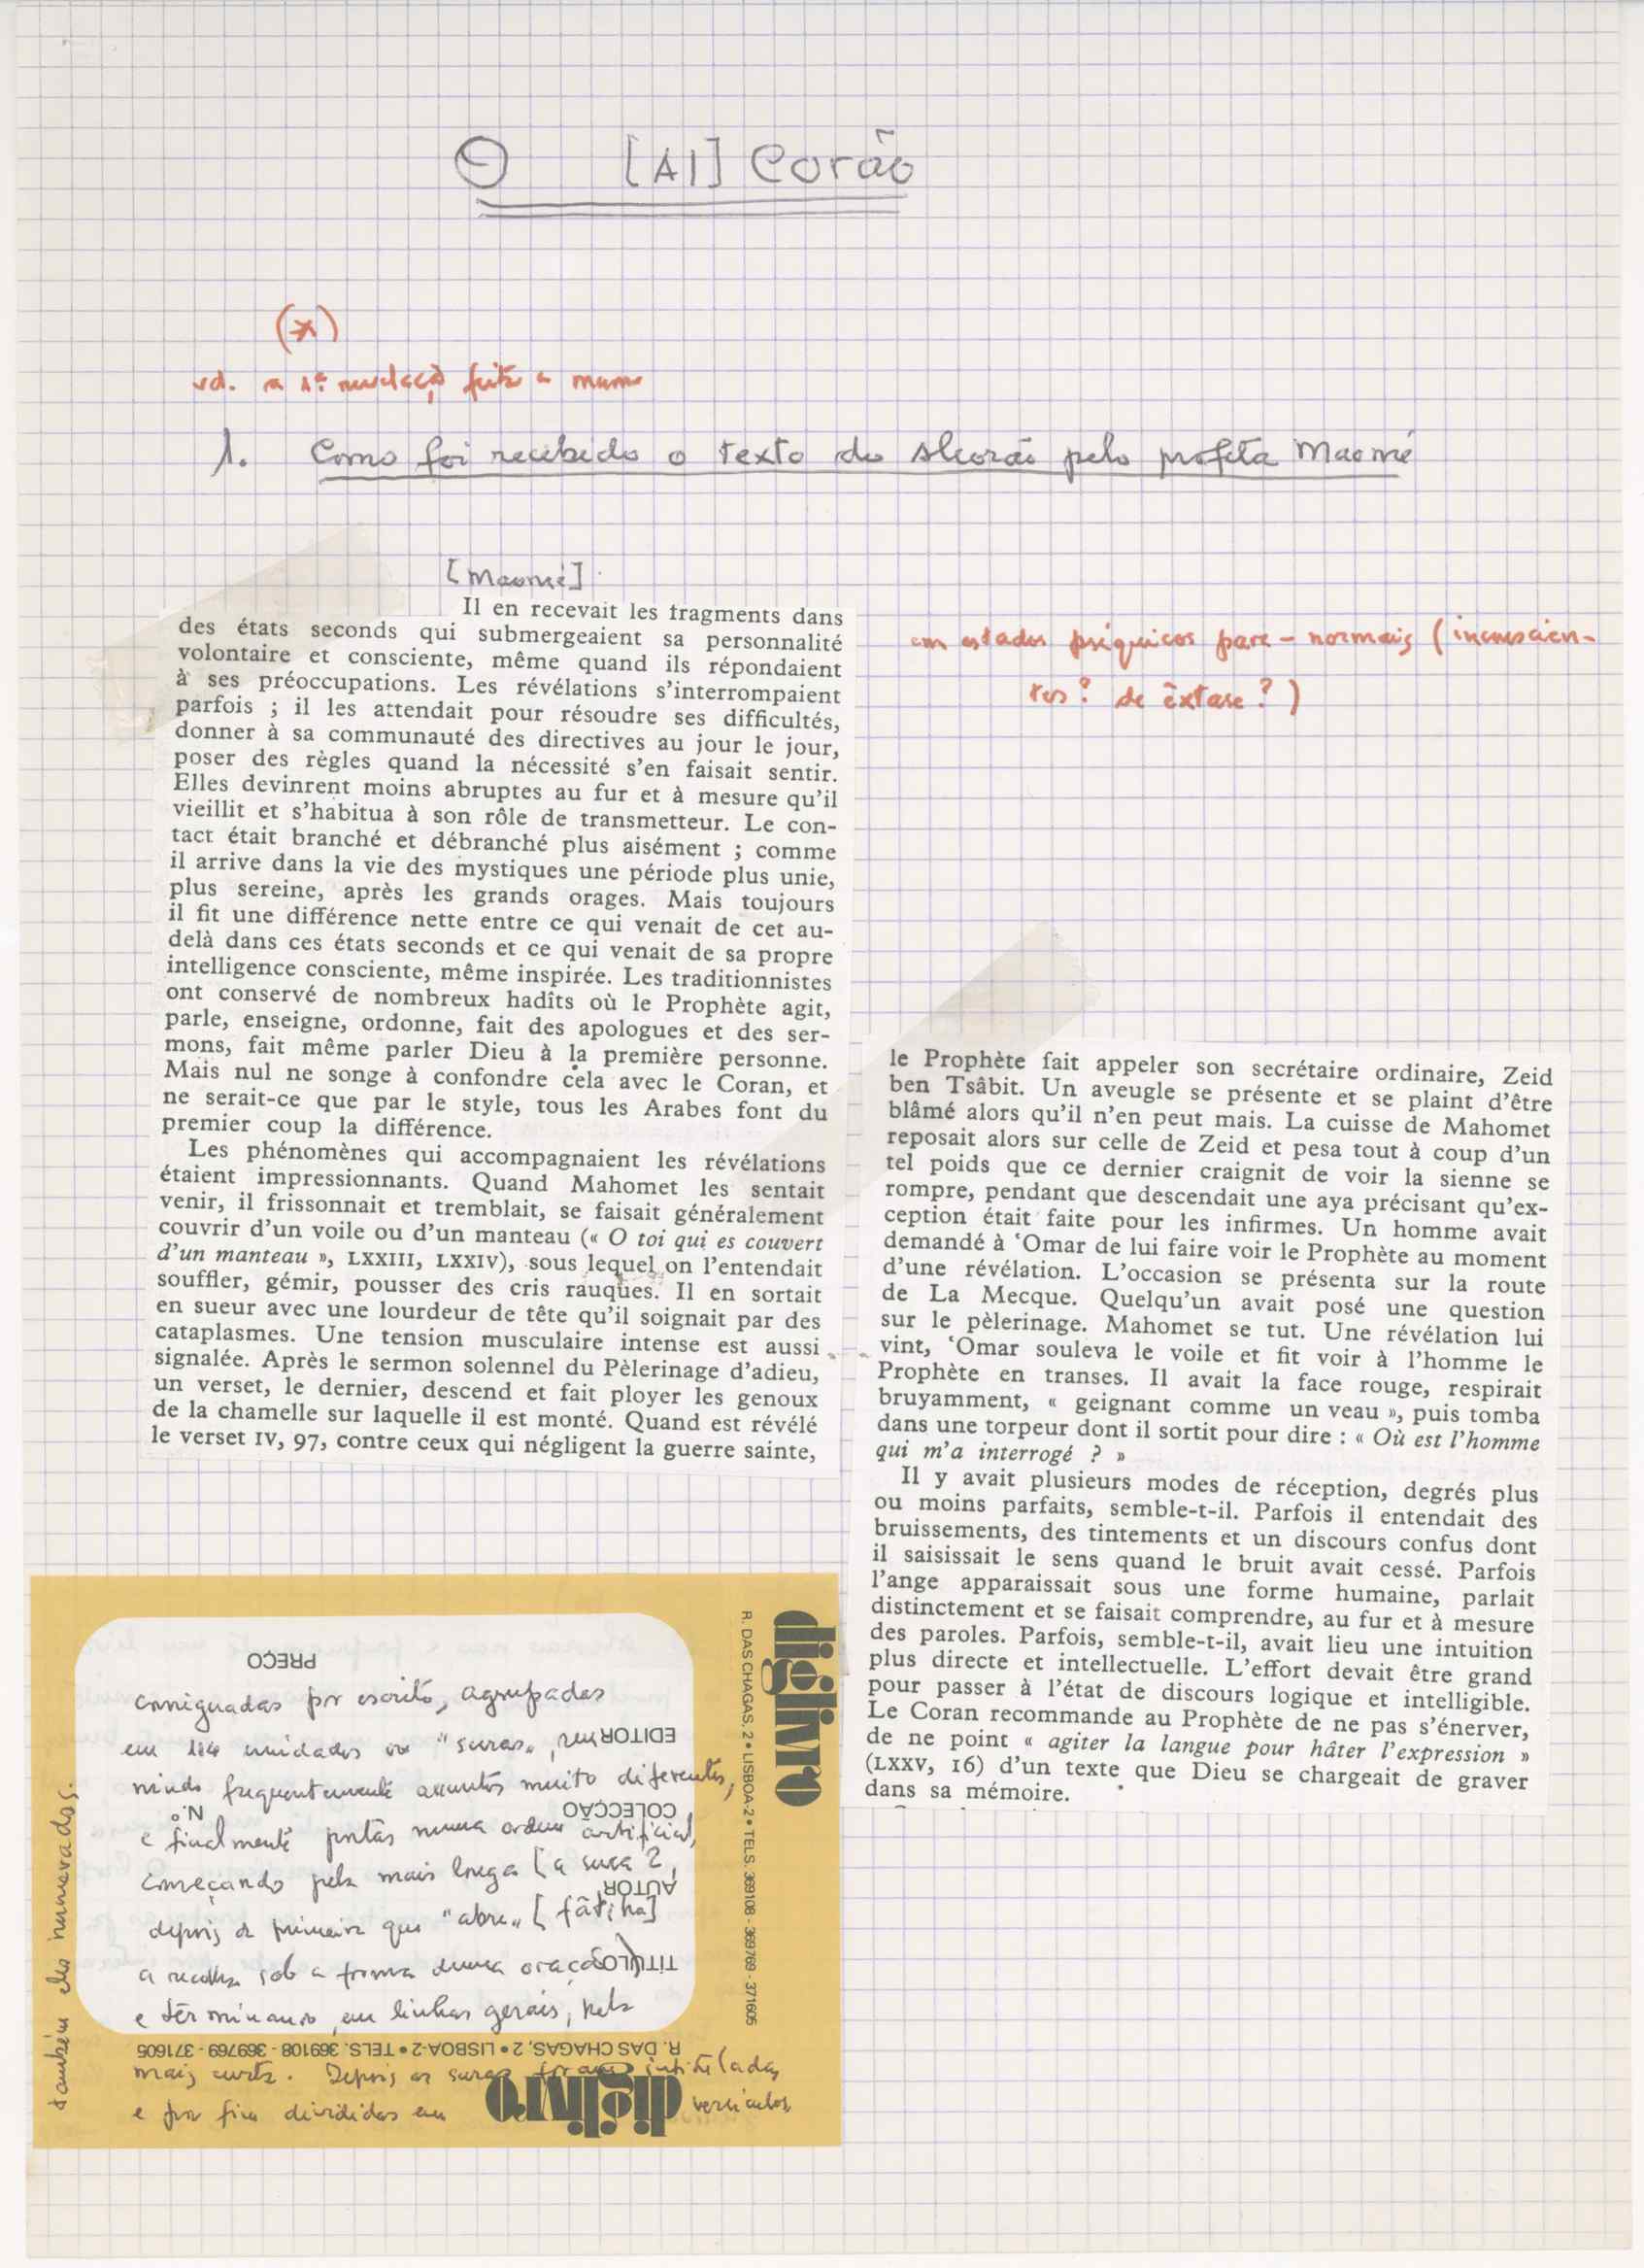 O [Al] Corão
(*)
vd. a 1ª revelação feita a
1. Como foi recebido o texto do Alcorão pelo profeta Maomé
[Maomé]
Il en recevait les fragments dans
des états seconds qui submergeaient sa personnalité
volontaire et consciente, même quand ils répondaient
à ses préoccupations. Les révélations s'interrompaient
parfois ; il les attendait pour résoudre ses difficultés,
donner à sa communauté des directives au jour le jour,
poser des règles quand la nécessité s'en faisait sentir.
Elles devinrent moins abruptes au fur et à mesure qu'il
vieillit et s'habitua à son rôle de transmetteur. Le con-
tact était branché et débranché plus aisément ; comme
il arrive dans la vie des mystiques une période plus unie,
plus sereine, après les grands orages. Mais toujours
il fit une différence nette entre ce qui venait de cet au-
delà dans ces états seconds et ce qui venait de sa propre
intelligence consciente, même inspirée. Les traditionnistes
ont conservé de nombreux hadîts où le Prophète agit,
parle, enseigne, ordonne, fait des apologues et des ser-
mons, fait même parler Dieu à la première personne.
Mais nul ne songe à confondre cela avec le Coran, et
ne serait-ce que par le style, tous les Arabes font du
premier coup la différence.
Les phénomènes qui accompagnaient les révélations
étaient impressionnants. Quand Mahomet les sentait
venir, il frissonnait et tremblait, se faisait généralement
couvrir d'un voile ou d'un manteau (« O toi qui es couvert
d'un manteau », LXXIII, LXXIV), sous lequel on l'entendait
souffler, gémir, pousser des cris rauques. Il en sortait
en sueur avec une lourdeur de tête qu'il soignait par des
cataplasmes. Une tension musculaire intense est aussi
signalée. Après le sermon solennel du Pèlerinage d'adieu,
un verset, le dernier, descend et fait ployer les genoux
de la chamelle sur laquelle il est monté. Quand est révélé
le verset IV, 97, contre ceux qui négligent la guerre sainte,
em estados psíquicos para-normais (inconscien-
tes? de êxtase?)
le Prophète fait appeler son secrétaire ordinaire, Zeid
ben Tsâbit. Un aveugle se présente et se plaint d'être
blâmé alors qu'il n'en peut mais. La cuisse de Mahomet
reposait alors sur celle de Zeid et pesa tout à coup d'un
tel poids que ce dernier craignit de voir la sienne se
rompre, pendant que descendait une aya précisant qu'ex-
ception était faite pour les infirmes. Un homme avait
demandé à ʿOmar de lui faire voir le Prophète au moment
d'une révélation. L'occasion se présenta sur la route
de La Mecque. Quelqu'un avait posé une question
sur le pèlerinage. Mahomet se tut. Une révélation lui
vint, ʿOmar souleva le voile et fit voir à l'homme le
Prophète en transes. Il avait la face rouge, respirait
bruyamment, « geignant comme un veau », puis tomba
dans une torpeur dont il sortit pour dire : « Où est l'homme
qui m'a interrogé ? »
Il y avait plusieurs modes de réception, degrés plus
ou moins parfaits, semble-t-il. Parfois il entendait des
bruissements, des tintements et un discours confus dont
il saisissait le sens quand le bruit avait cessé. Parfois
l'ange apparaissait sous une forme humaine, parlait
distinctement et se faisait comprendre, au fur et à mesure
des paroles. Parfois, semble-t-il, avait lieu une intuition
plus directe et intellectuelle. L'effort devait être grand
pour passer à l'état de discours logique et intelligible.
Le Coran recommande au Prophète de ne pas s'énerver,
de ne point « agiter la langue pour hâter l'expression »
(LXXV, 16) d'un texte que Dieu se chargeait de graver
dans sa mémoire.
PREÇO
consignadas por escrito, agrupadas
em 114 unidades ou "suras", reu-
EDITOR
nindo frequentemente assuntos muito diferentes,
COLECÇÃO
N.º
e finalmente postas numa ordem artificial,
começando pela mais longa [a sura 2,
AUTOR
depois da primeira que "abre" [fâtiha]
a recolha sob a forma duma oração)
TITULO
e terminando, em linhas gerais, pela
R. DAS CHAGAS, 2 • LISBOA-2 • TELS. 369108 - 369769 - 371605
mais curta. Depois as suras foram intituladas
e por fim divididas em versículos,
diglivro
também eles numerados.
diglivro
R. DAS CHAGAS, 2 • LISBOA-2 • TELS. 369108 - 369769 - 371605